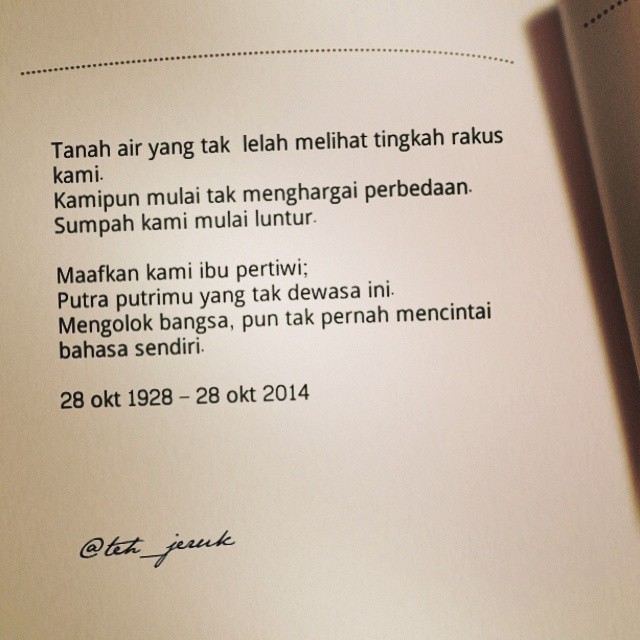 Tanah air yang tak  lelah melihat tingkah rakus
kami.
Kamipun mulai tak menghargai perbedaan.
Sumpah kami mulai luntur.
Maafkan kami ibu pertiwi;
Putra putrimu yang tak dewasa ini.
Mengolok bangsa, pun tak pernah mencintai
bahasa sendiri.
28 okt 1928 – 28 okt 2014
@teh_jeruk